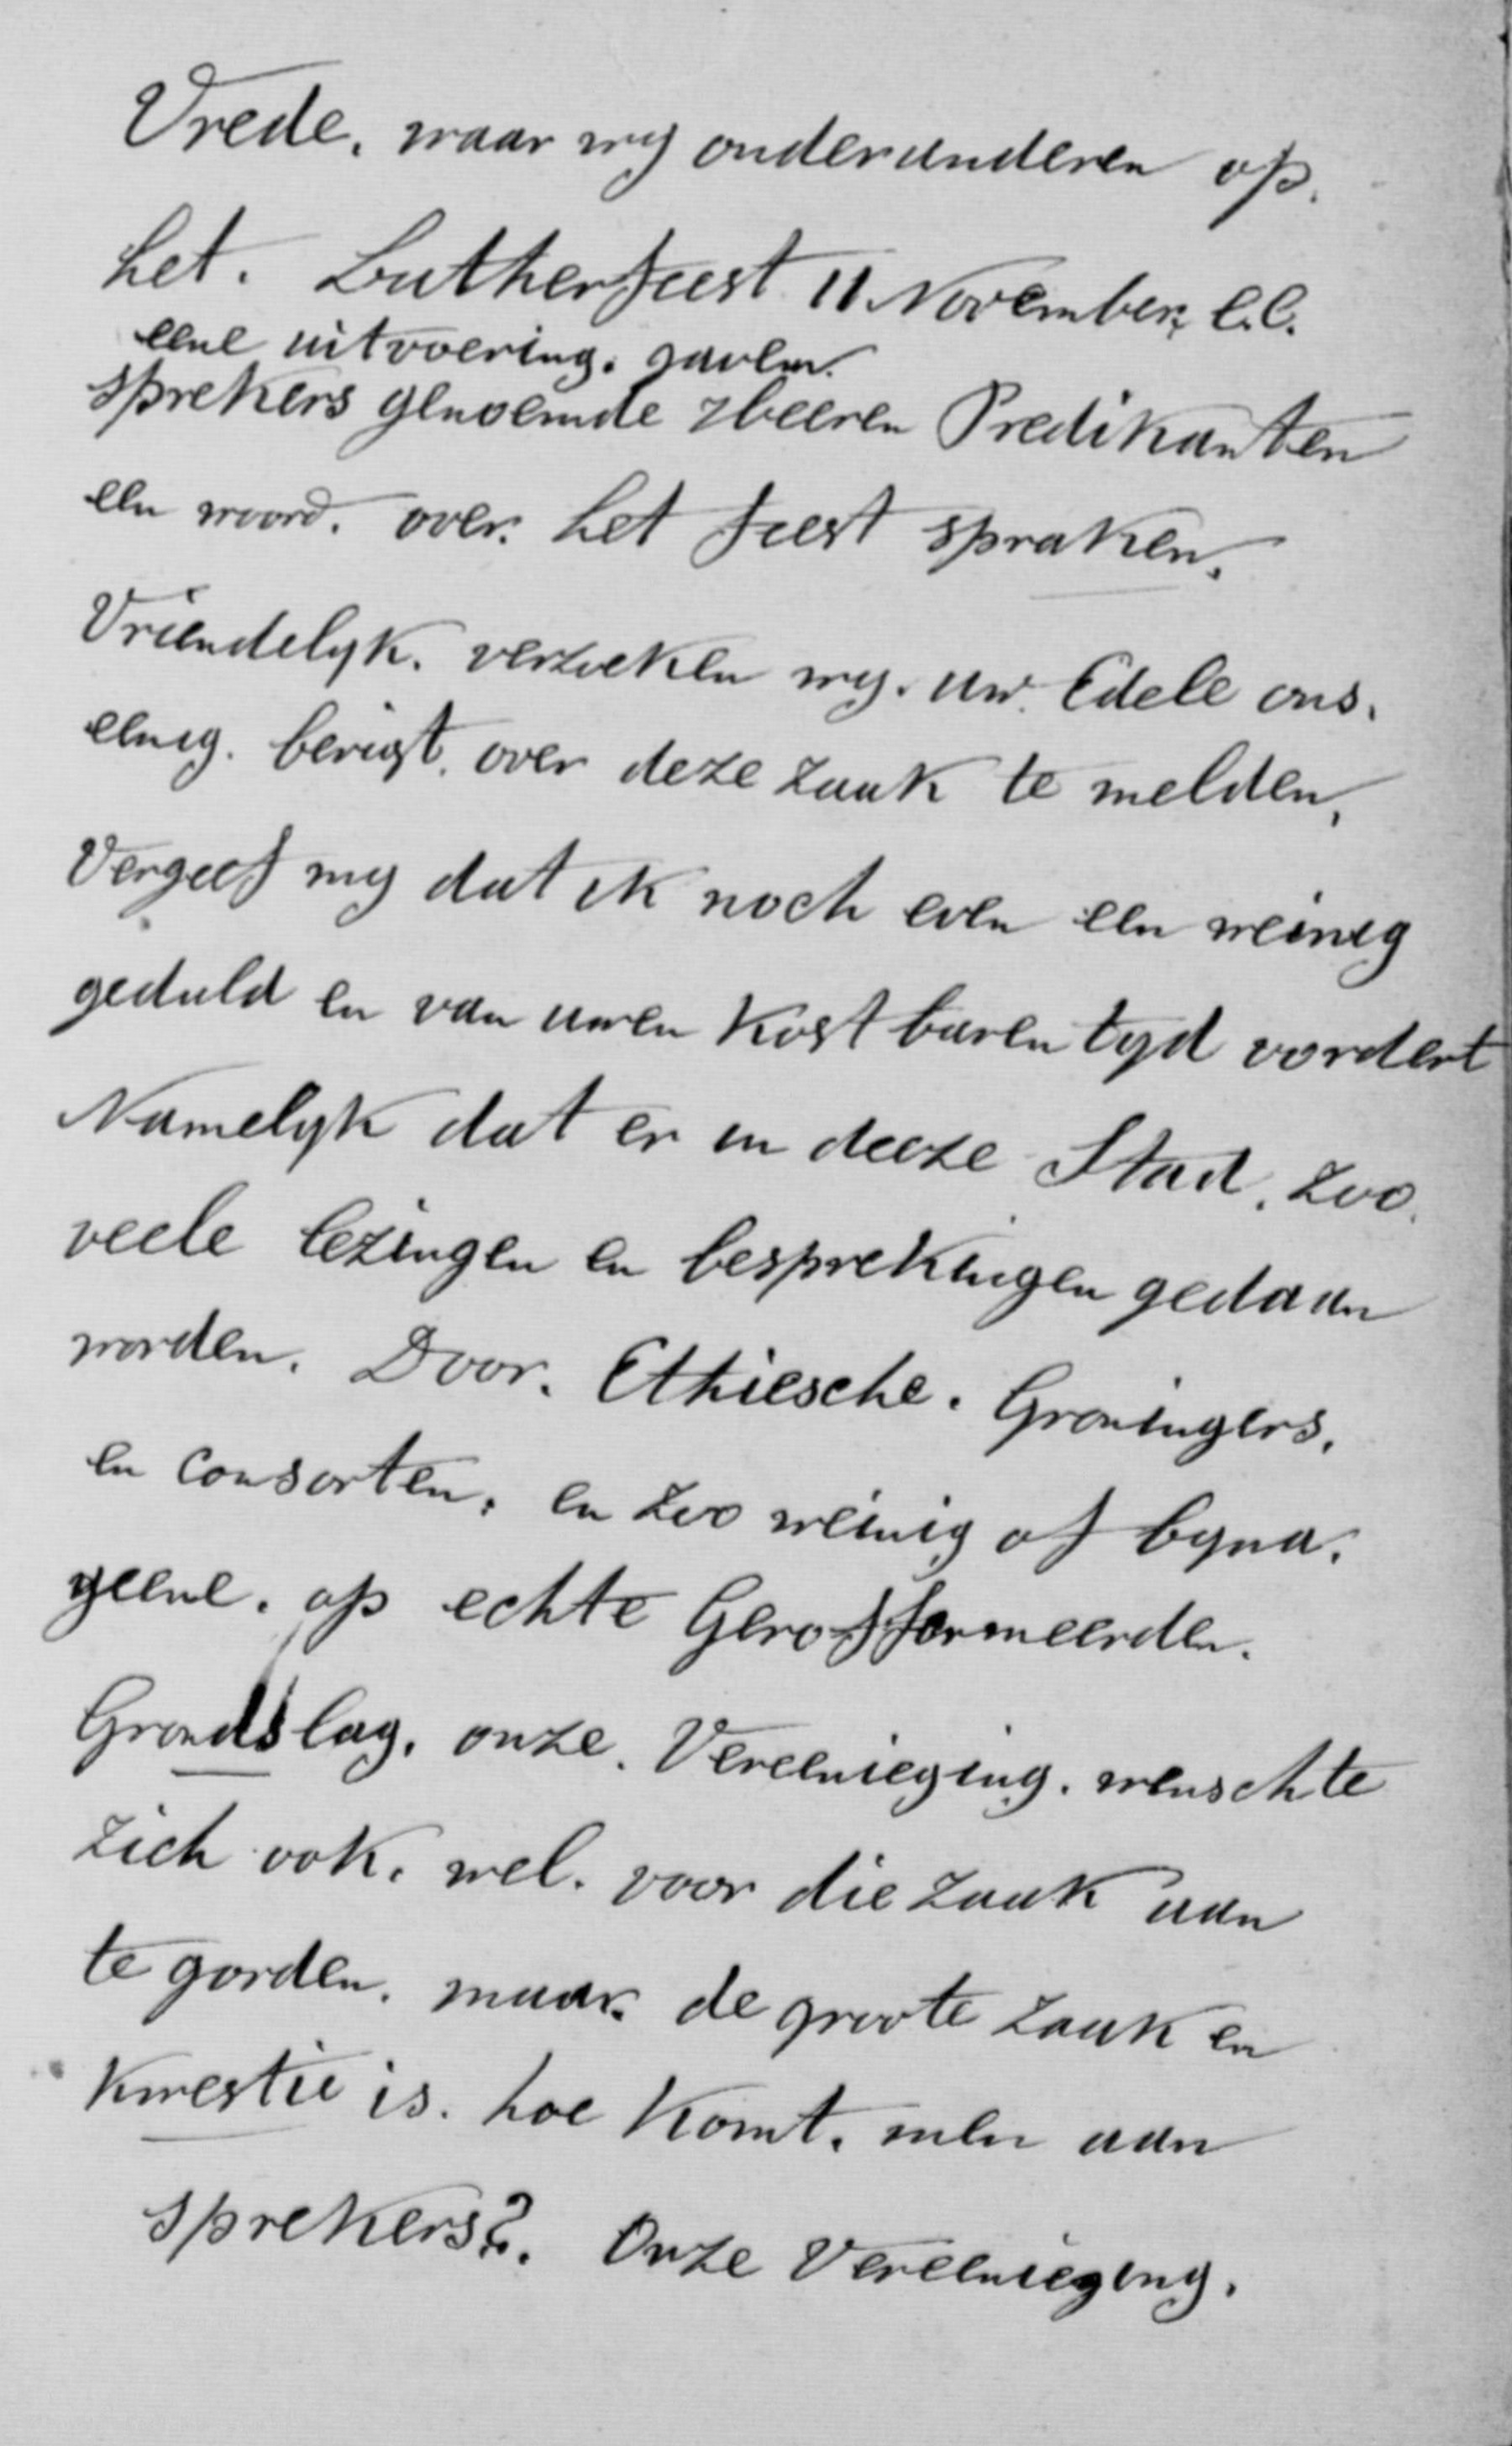 Vrede. waar wij onderanderen op.
het. Lutherfeest 11 November, l.l.
eene uitvoering. gaven.
sprekers genoemde Heeren Predikanten
een woord. over. het feest spraken.
Vriendelyk. verzoeken wy. uw. Edele ons.
eenig. berigt. over deze zaak te melden,
Vergeef my dat ik noch even een weinig
geduld en van uwen kostbaren tyd vordert
Namelyk dat er in deeze Stad. zoo.
veele lezingen en besprekingen gedaan
worden. Door. Ethiesche. Groningers.
en consorten. en zoo weinig of byna.
geene. op echte Gerofformeerden.
Grondslag. onze. Vereenieging. wenschte
zich ook. wel. voor die zaak aan
te gorden. maar. de groote zaak en
kwestie is. hoe komt. men aan
sprekers?. Onze Vereenieging.